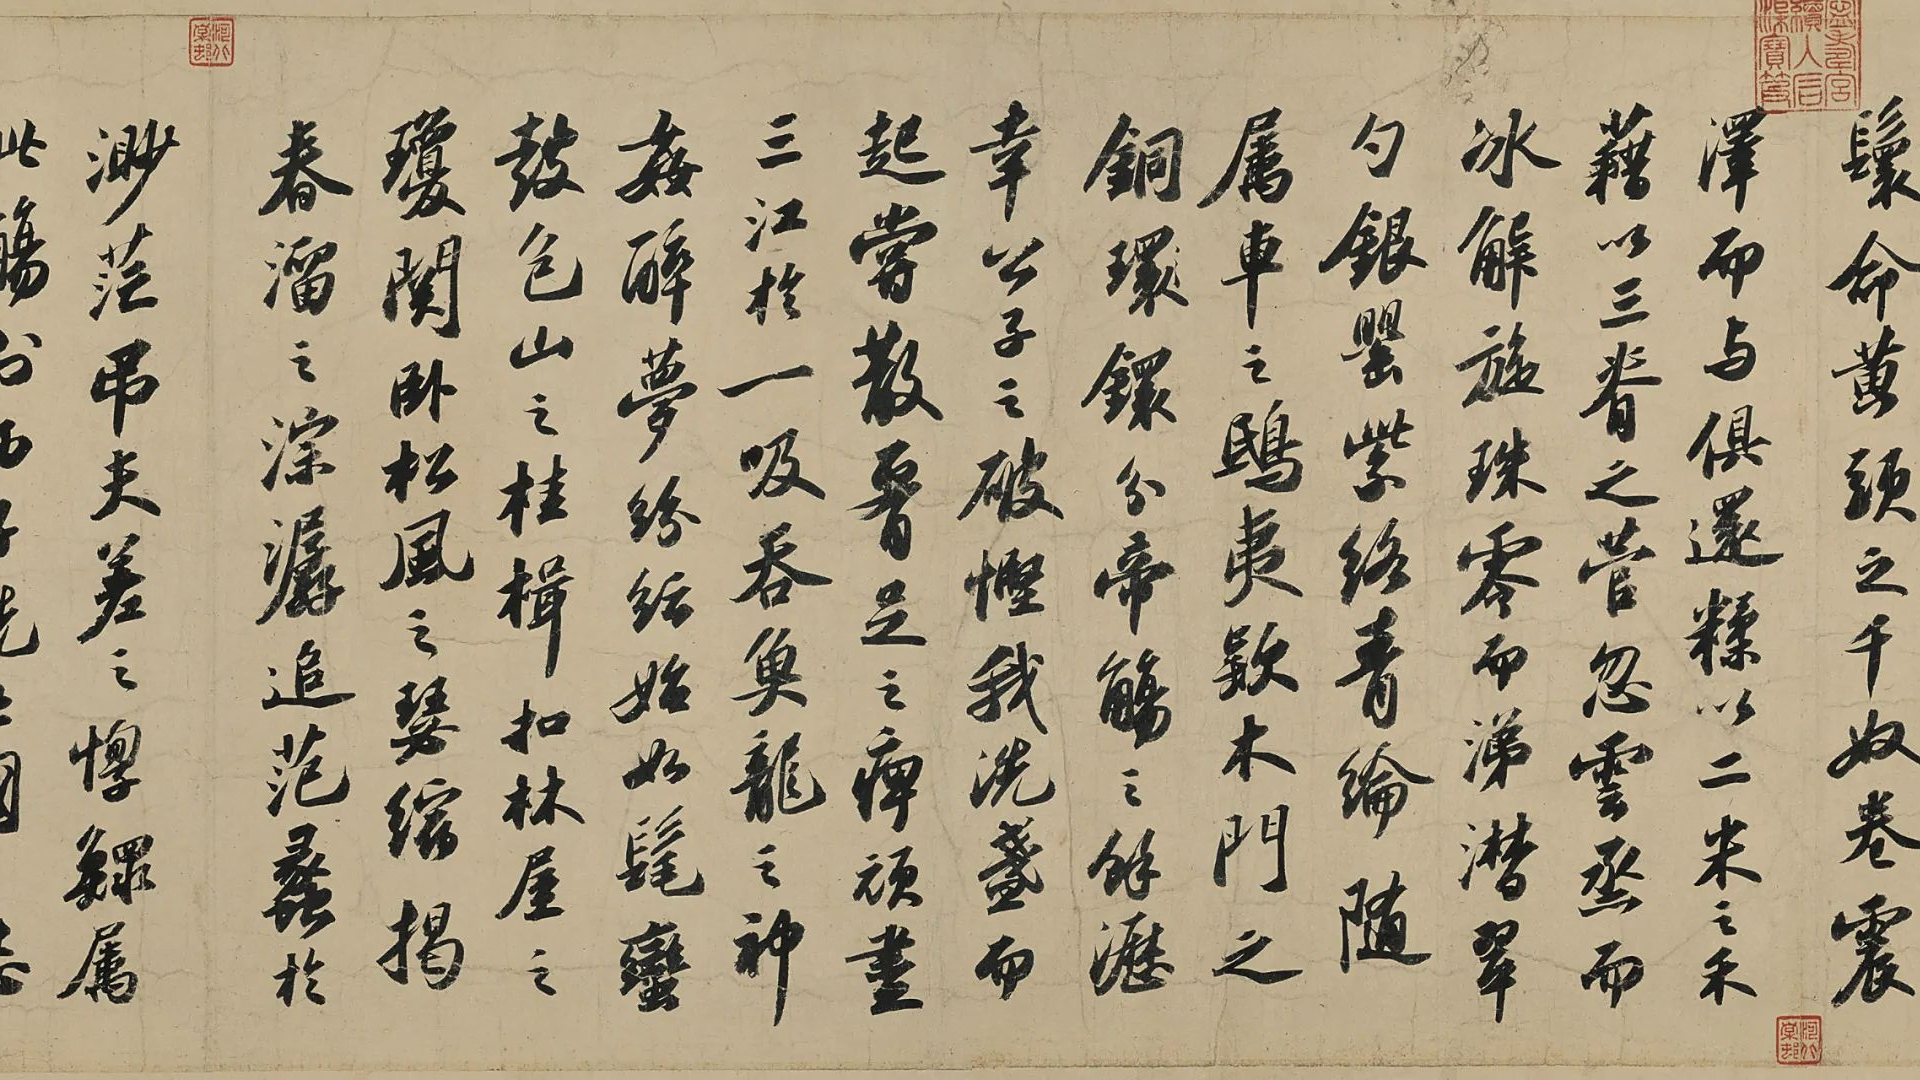 鬟命黄頭之千奴卷震
澤而与俱還糅以二米之禾
藉以三脊之菅忽雲烝而
冰解旋珠零而涕潸翠
勺銀罌紫絡青綸隨
属車之鴟夷欵木門之
銅環鐶分帝觴之餘瀝
幸公子之破慳我洗盞而
起嘗散腰足之痺頑盡
三江於一吸吞魚龍之神
姦醉夢紛紜始如髦蠻
鼓包山之桂楫扣林屋之
瓊関卧松風之瑟縮揭
春溜之淙潺追范蠡於
渺茫吊夫差之惸鰥属
此觴於西子洗亡國之愁